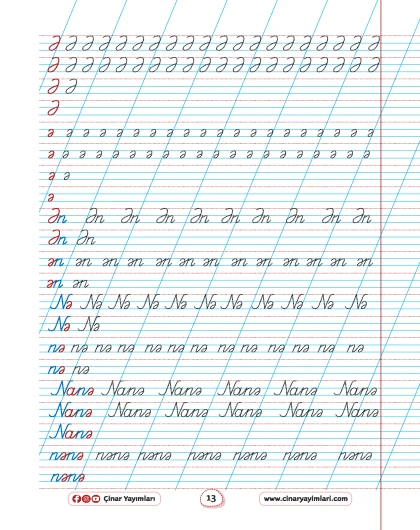 Ə Ə Ə Ə Ə Ə Ə Ə Ə Ə Ə Ə Ə Ə Ə Ə Ə Ə Ə Ə
Ə Ə Ə Ə Ə Ə Ə Ə Ə Ə Ə Ə Ə Ə Ə Ə Ə Ə Ə Ə
Ə Ə
Ə
ə ə ə ə ə ə ə ə ə ə ə ə ə ə ə ə ə ə ə
ə ə ə ə ə ə ə ə ə ə ə ə ə ə ə ə ə ə ə
ə ə
ə
Ən Ən Ən Ən Ən Ən Ən Ən Ən Ən
Ən Ən
ən ən ən ən ən ən ən ən ən ən ən ən ən
ən ən
Nə Nə Nə Nə Nə Nə Nə Nə Nə Nə Nə
Nə Nə
nə nə nə nə nə nə nə nə nə nə nə nə nə
nə nə
Nənə Nənə Nənə Nənə Nənə Nənə
Nənə Nənə Nənə Nənə Nənə Nənə
Nənə
nənə nənə nənə nənə nənə nənə nənə
nənə
Çinar Yayımları 13 www.cinaryayimlari.com